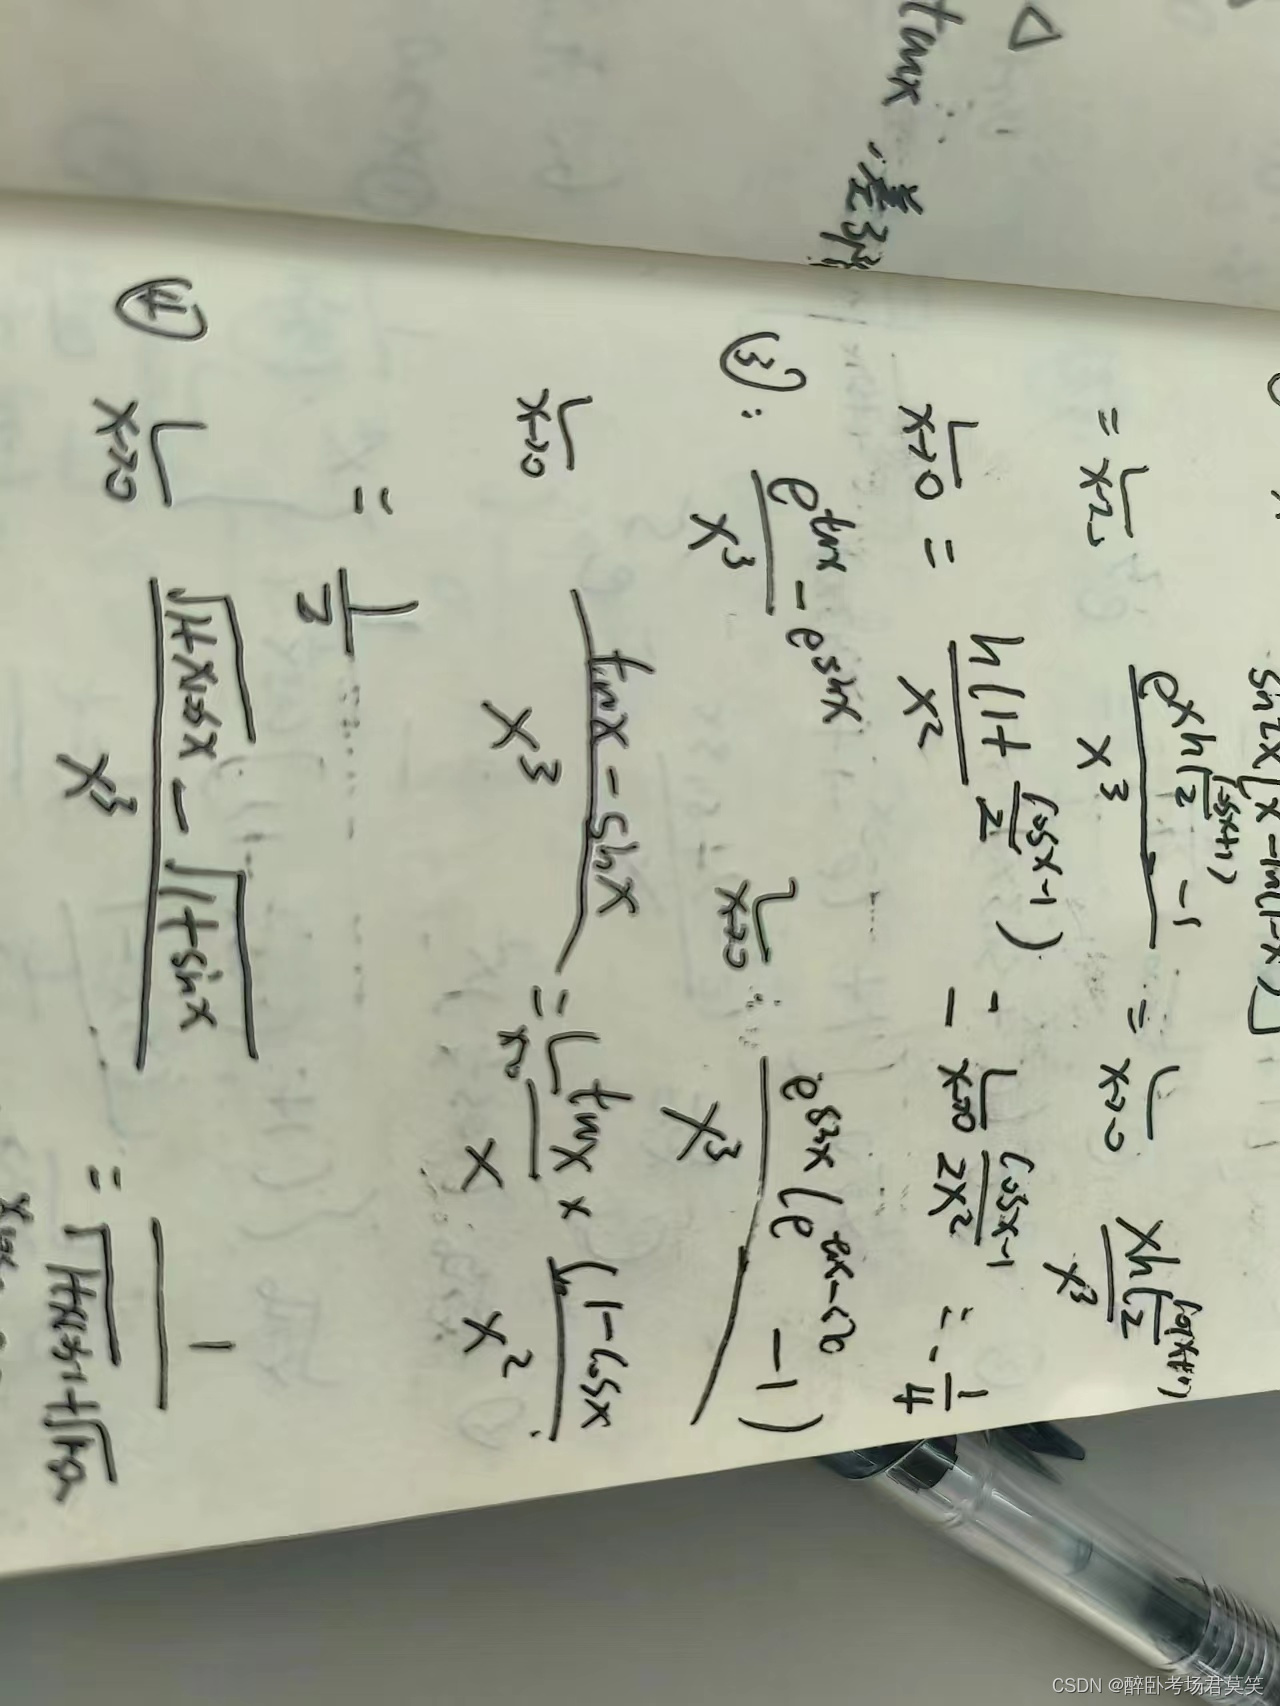 tanx 差
sin2x[x-ln(1-x)]
= L x→0 (e^{xln(\frac{cosx+1}{2})} -1)/x^3 = L x→0 xln(\frac{cosx+1}{2})/x^3
L x→0 = ln(1+\frac{cosx-1}{2})/x^2 = L x→0 \frac{cosx-1}{2x^2} = -\frac{1}{4}
③: \frac{e^{tanx}-e^{sinx}}{x^3} L x→0 \frac{e^{sinx}(e^{tanx-sinx}-1)}{x^3}
L x→0 \frac{tanx-sinx}{x^3} = L x→0 \frac{tanx}{x} × \frac{(1-cosx}{x^2}
= \frac{1}{2}
④ L x→0 \frac{\sqrt{1+xcosx}-\sqrt{1+sinx}}{x^3} = \frac{1}{\sqrt{1+xcosx}+\sqrt{1+sinx}}
CSDN @醉卧考场君莫笑